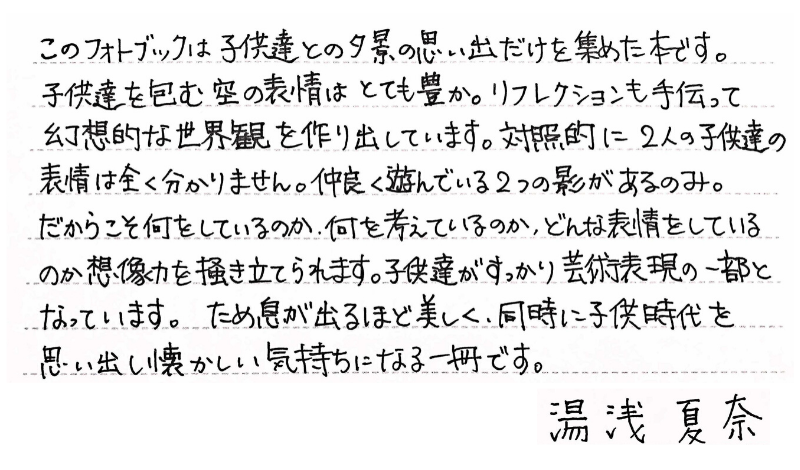 このフォトブックは子供達との夕景の思い出だけを集めた本です。
子供達を包む空の表情はとても豊か。リフレクションも手伝って
幻想的な世界観を作り出しています。対照的に2人の子供達の
表情は全く分かりません。仲良く遊んでいる2つの影があるのみ。
だからこそ何をしているのか、何を考えているのか、どんな表情をしている
のか想像力を掻き立てられます。子供達がすっかり芸術表現の一部と
なっています。 ため息が出るほど美しく、同時に子供時代を
思い出し懐かしい気持ちになる一冊です。
湯浅 夏奈